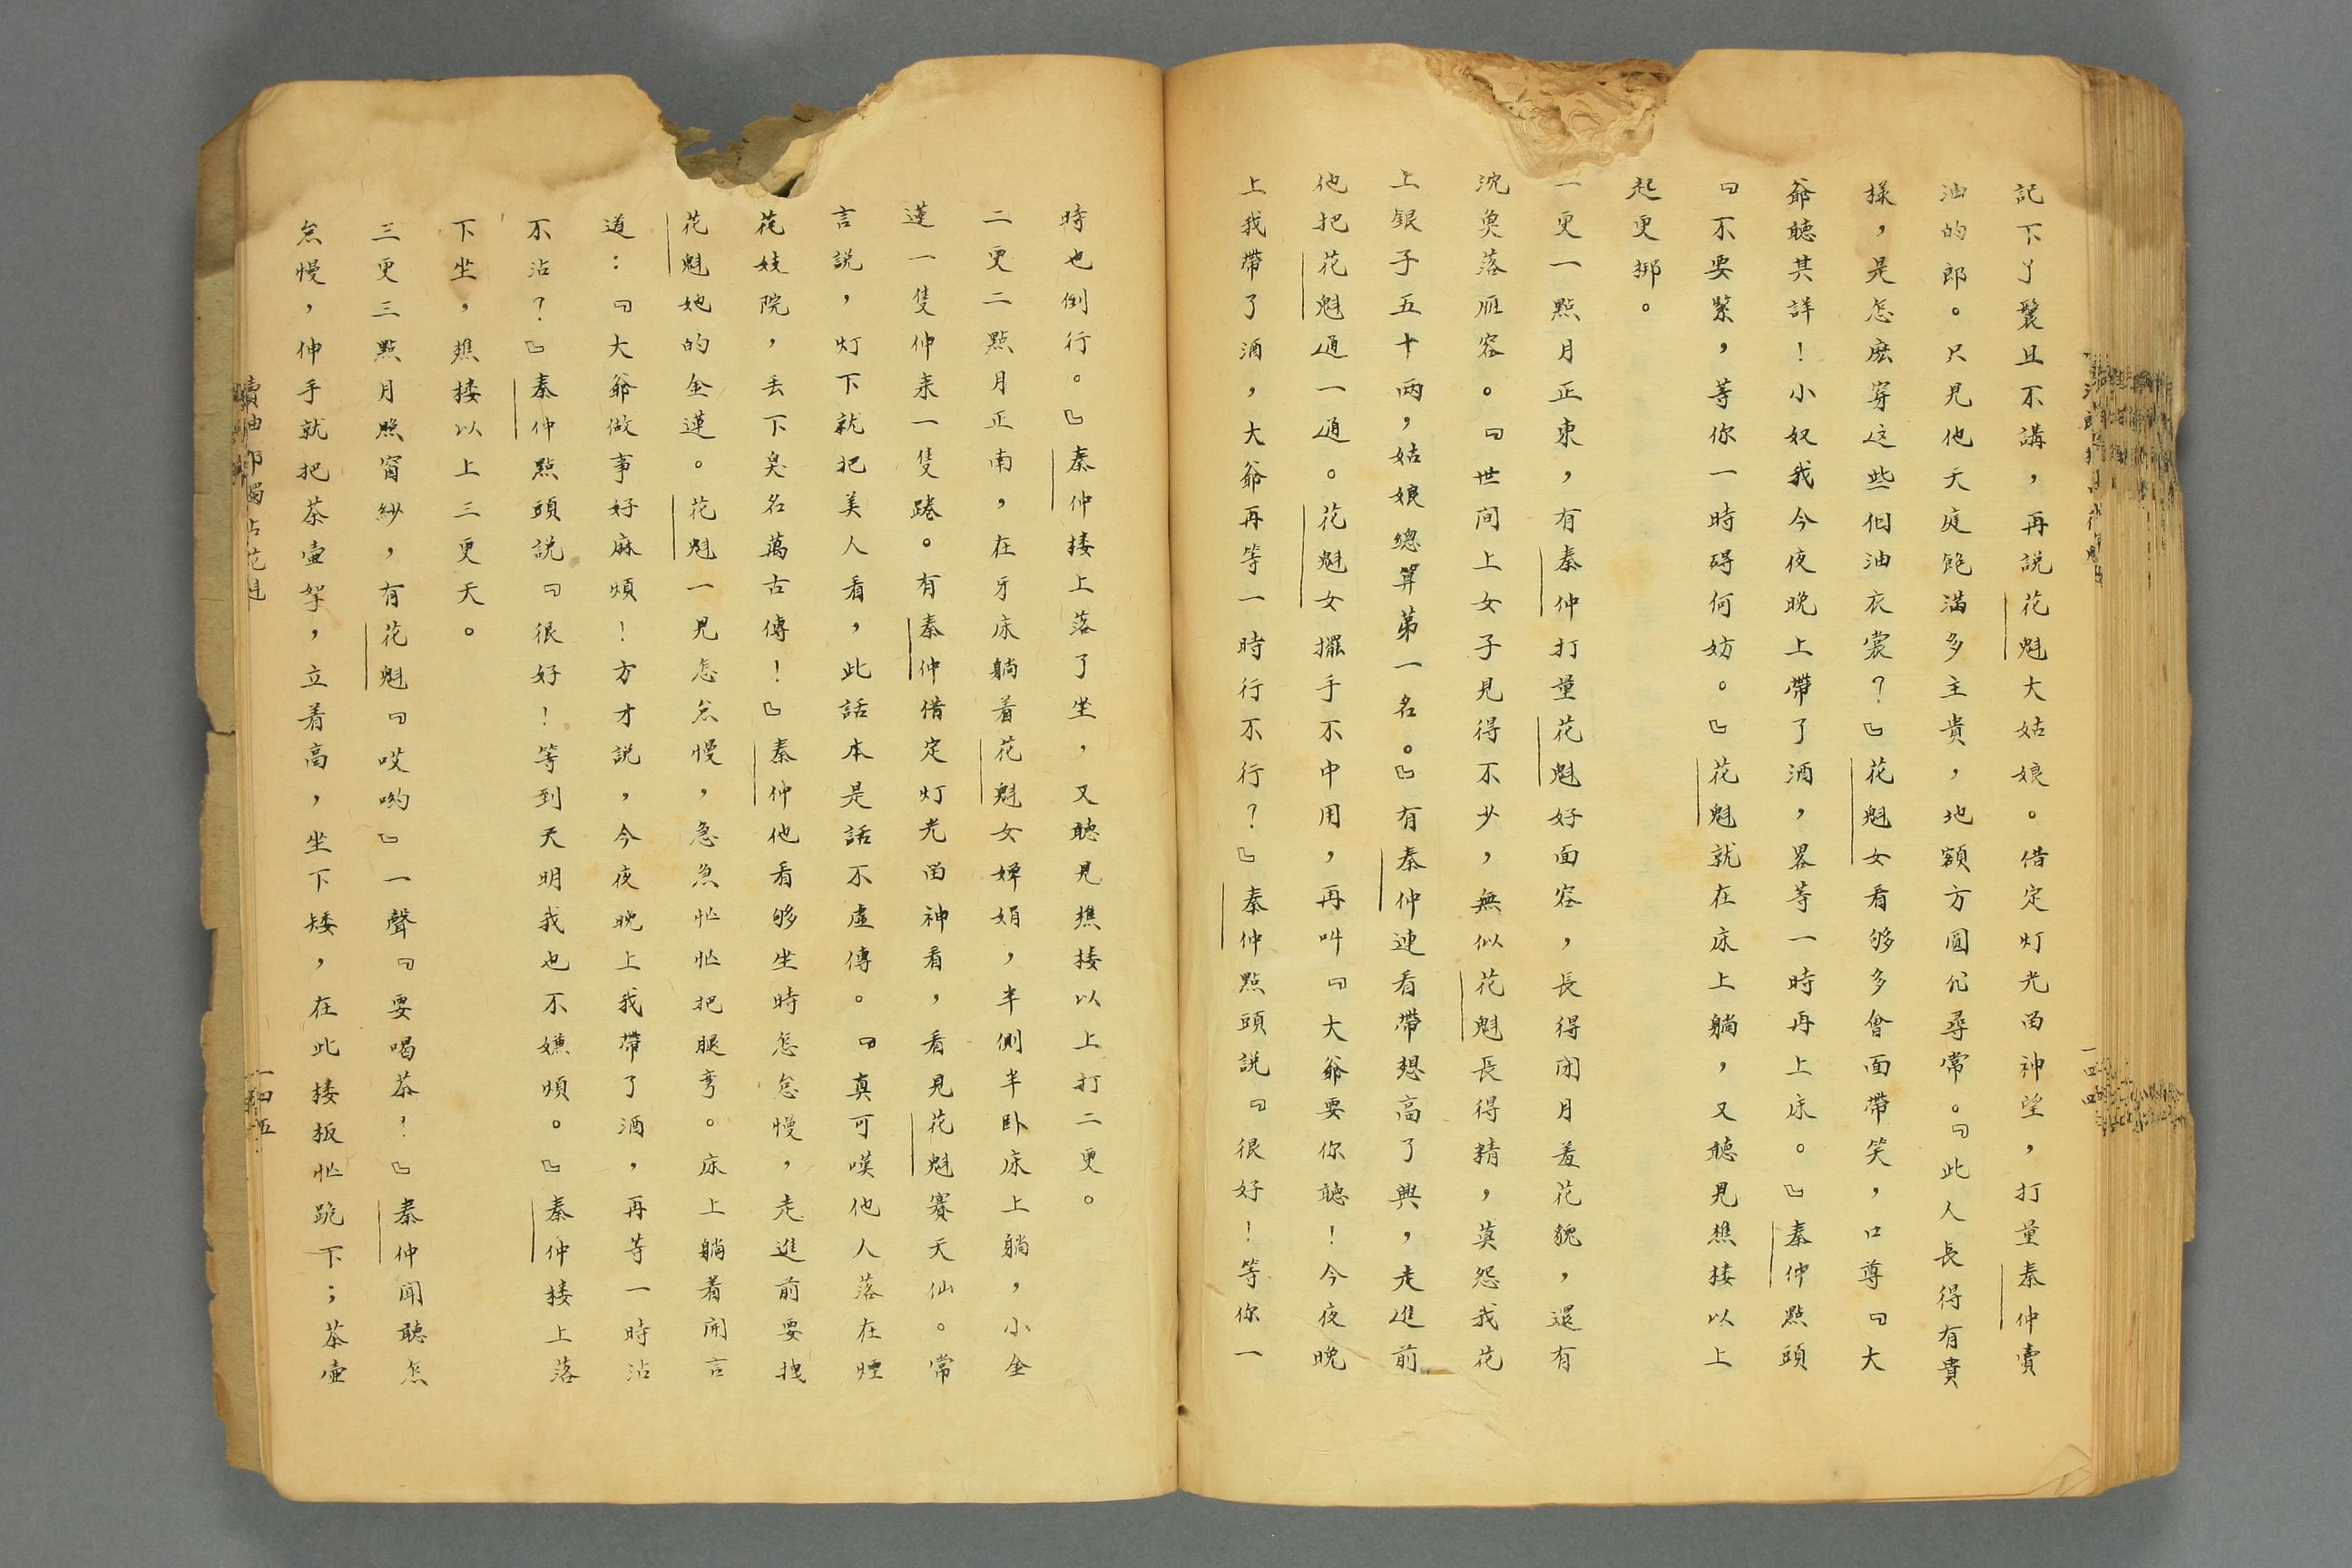 記下丫鬟且不講，再説花魁大姑娘。借定灯光㽞神望，打量秦仲賣
油的郎。只見他天庭飽滿多主貴，地額方圓仈尋常。『此人長得有貴
樣，是怎麽穿这些個油衣裳？』花魁女看够多會面帶笑，口尊『大
爺聽其詳！小奴我今夜晚上帶了酒，畧等一時再上床。』秦仲點頭
『不要緊，等你一時碍何妨。』花魁就在床上躺，又聽見樵接以上
起更梆。
一更一點月正東，有秦仲打量花魁好面容，長得闭月羞花貌，還有
沈魚落雁容。『世间上女子見得不少，無似花魁長得精，莫怨我花
上銀子五十兩，姑娘總算第一名。』有秦仲連看帶想高了興，走進前
他把花魁通一通。花魁女擺手不中用，再叫『大爺要你聽！今夜晚
上我帶了酒，大爺再等一時行不行？』秦仲點頭説『很好！等你一
時也倒行。』秦仲接上落了坐，又聽見樵接以上打二更。
二更二點月正南，在牙床躺着花魁女嬋娟，半側半卧床上躺，小金
蓮一隻伸来一隻踡。有秦仲借定灯光㽞神看，看見花魁賽天仙。常
言説，灯下就把美人看，此話本是話不虛傳。『真可嘆他人落在烟
花妓院，丢下臭名萬古傳！』秦仲他看够坐時怎怠慢，走進前要拽
花魁她的金蓮。花魁一見怎怠慢，急急忙忙把腿弯。床上躺着開言
道：『大爺做事好麻煩！方才説，今夜晚上我帶了酒，再等一時沾
不沾？』秦仲點頭説『很好！等到天明我也不嫌煩。』秦仲接上落
下坐，樵接以上三更天。
三更三點月照窗紗，有花魁『哎喲』一聲『要喝茶！』秦仲闻聽怎
怠慢，伸手就把茶壷拏，立着高，坐下矮，在此接板忙跪下；茶壷
賣油郎獨占花魁
一四五
一四四